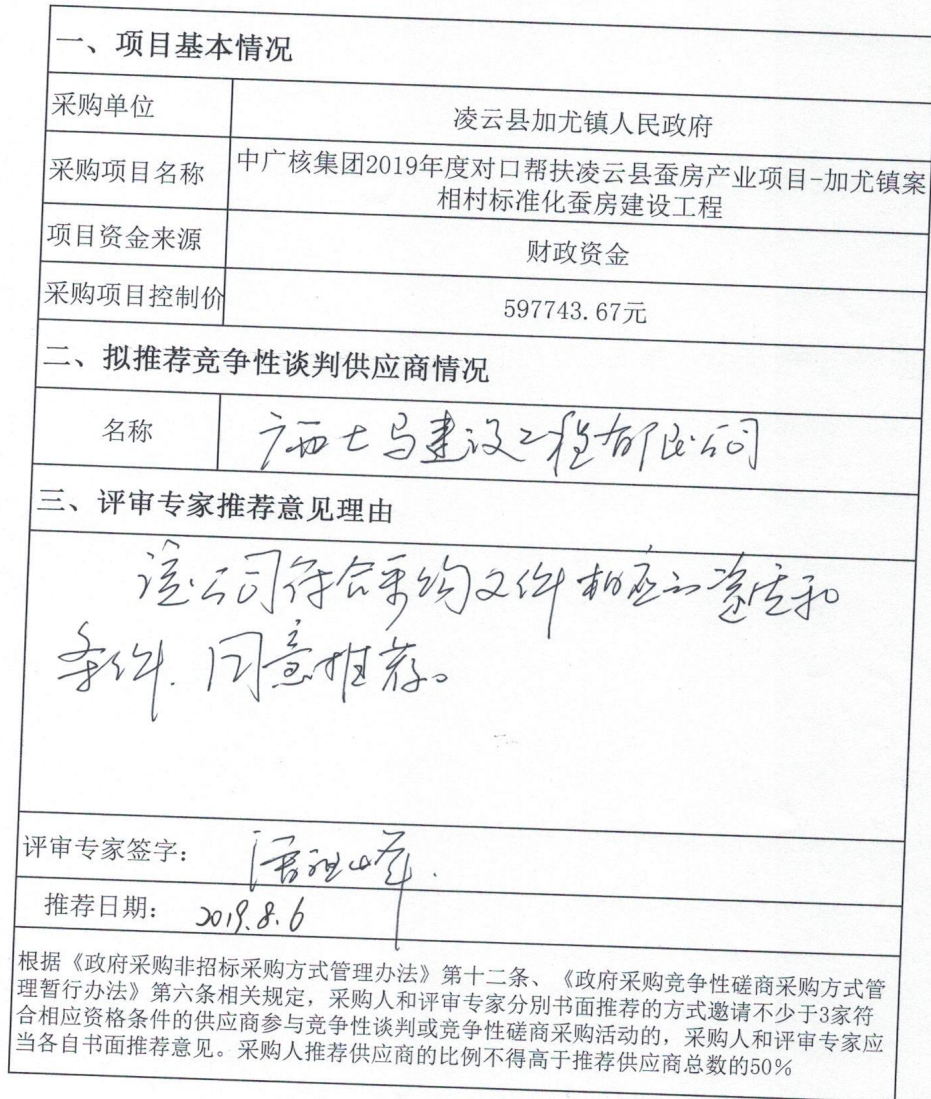 一、项目基本情况
采购单位
凌云县加尤镇人民政府
采购项目名称
中广核集团2019年度对口帮扶凌云县蚕房产业项目-加尤镇案
相村标准化蚕房建设工程
项目资金来源
财政资金
采购项目控制价
597743.67元
二、拟推荐竞争性谈判供应商情况
名称
广西七马建设工程有限公司
三、评审专家推荐意见理由
该公司符合采购文件相应的资质和
条件.同意推荐。
评审专家签字:
推荐日期:
2019.8.6
根据《政府采购非招标采购方式管理办法》第十二条、《政府采购竞争性磋商采购方式管
理暂行办法》第六条相关规定,采购人和评审专家分别书面推荐的方式邀请不少于3家符
合相应资格条件的供应商参与竞争性谈判或竞争性磋商采购活动的,采购人和评审专家应
当各自书面推荐意见。采购人推荐供应商的比例不得高于推荐供应商总数的50%